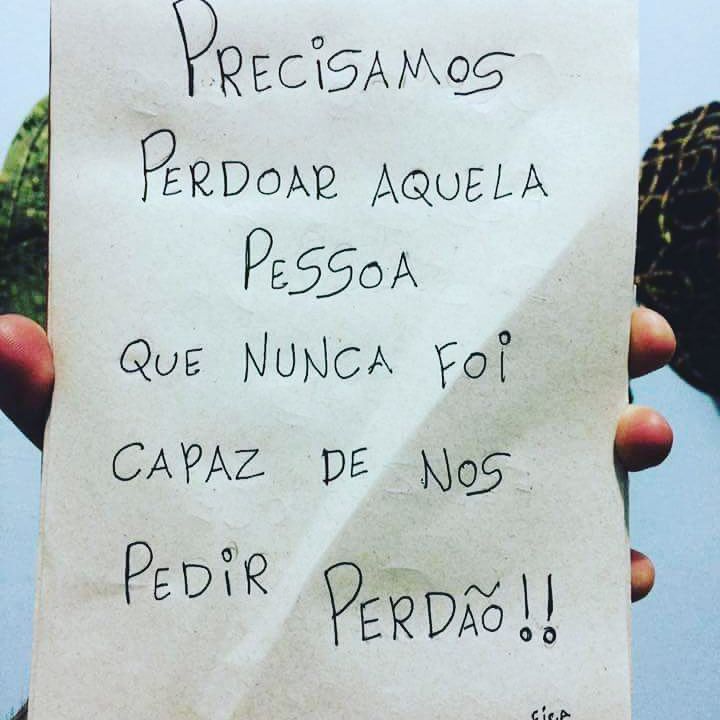 PRECISAMOS
PERDOAR AQUELA
PESSOA
QUE NUNCA FOI
CAPAZ DE NOS
PEDIR PERDÃO!!